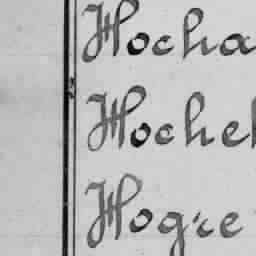 Hocha
Hochel
Hogre